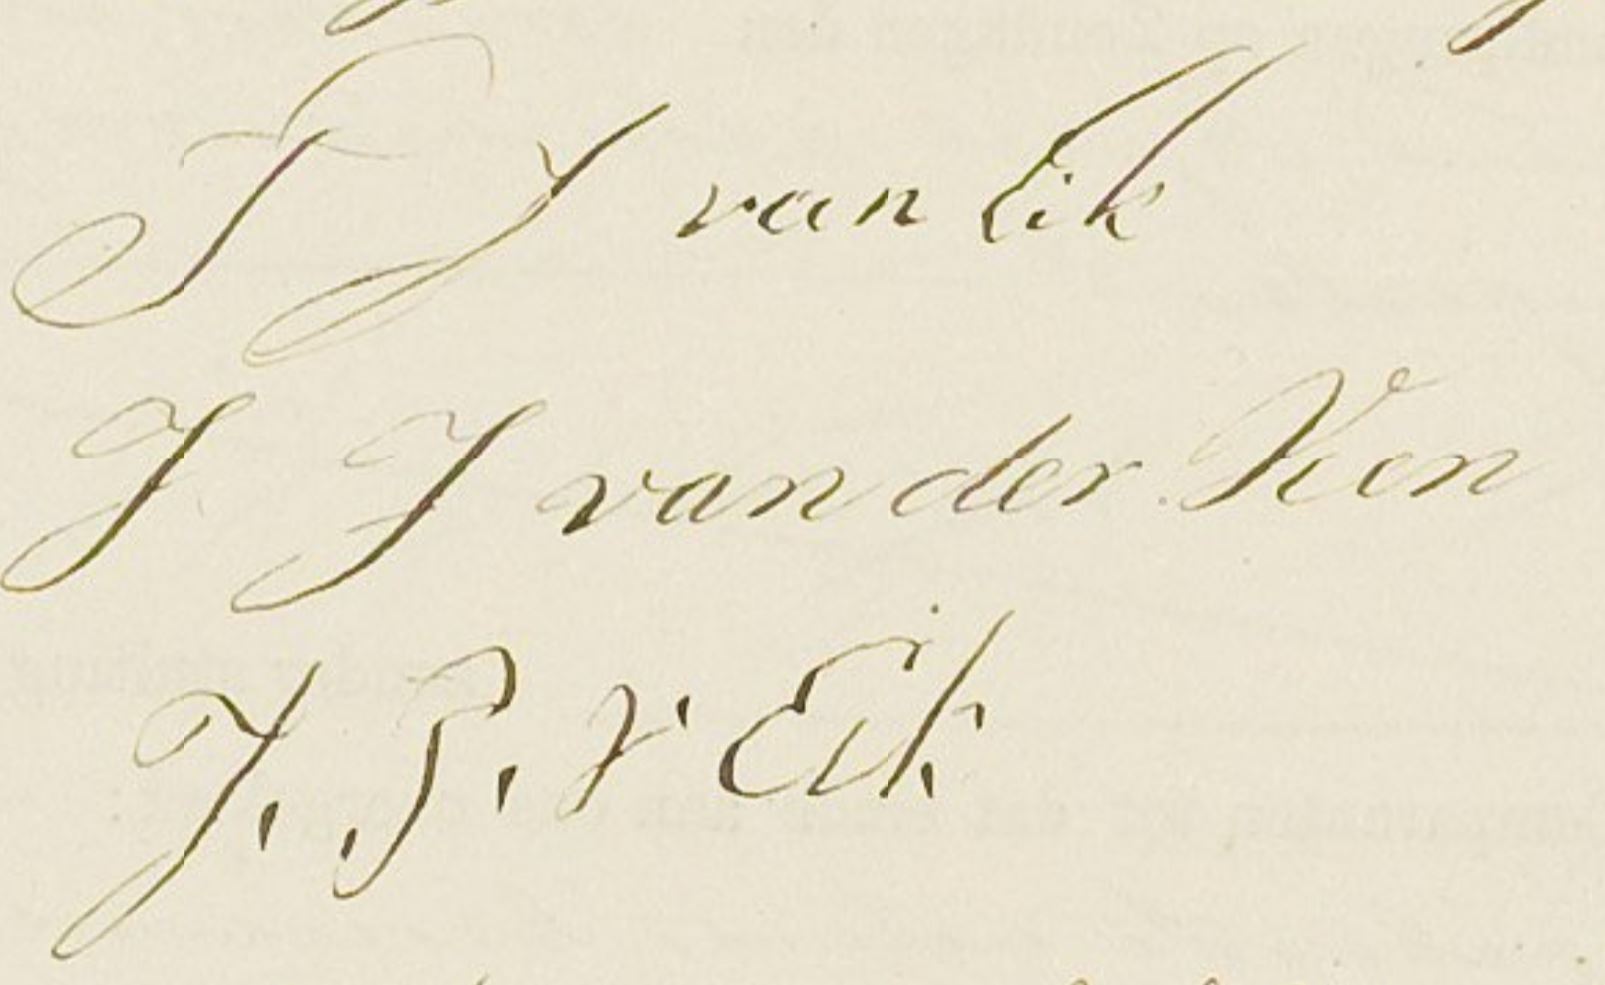 J J van Eik
J J van der Veen
J. P. v Eik